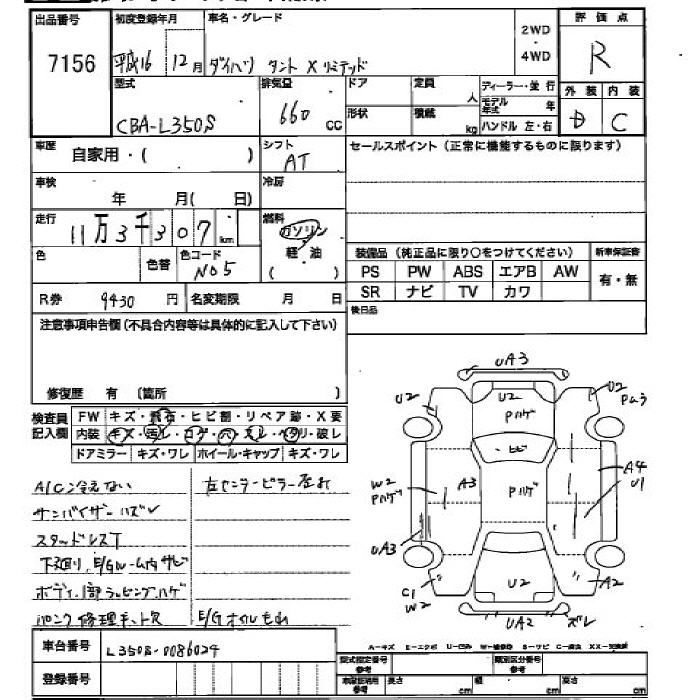 出品番号
7156
初度登録年月
平成16 12月
車名・グレード
ダイハツ タント X リミテッド
2WD
・
4WD
評価点
R
外装 内装
D C
型式
CBA-L350S
排気量
660 cc
ドア
定員
人
形状
積載
kg
ディーラー・並行
モデル年式 年
ハンドル 左・右
車歴
自家用・( )
シフト
AT
セールスポイント(正常に機能するものに限ります)
車検
年 月( 日)
冷房
走行
11万3千307 km
燃料
ガソリン
軽油
( )
色
色替
色コード
NO5
装備品(純正品に限り○をつけてください)
新車保証書
PS PW ABS エアB AW
SR ナビ TV カワ
有・無
R券 9430 円
名変期限 月 日
後日品
注意事項申告欄(不具合内容等は具体的に記入して下さい)
修復歴 有 〔箇所 〕
検査員
記入欄
FW キズ・飛石・ヒビ割・リペア跡・X要
内装 キズ・汚レ・コゲ・穴・スレ・ヘタリ・破レ
ドアミラー キズ・ワレ ホイール・キャップ キズ・ワレ
A/C冷えない
サンバイザーハズレ
スタッドレスT
下廻り、E/Gルーム内サビ
ボディ1部ラッピングハゲ
パンク修理キット欠
左センターピラー歪み
E/Gオイルもれ
UA3
U2
U2
Pハゲ
U2
PU3
ヒビ
A3
Pハゲ
W2
Pハゲ
A4
U1
UA3
C1
W2
U2
A2
UA2
ズレ
A-キズ E-エクボ U-凹み W-補修跡 S-サビ C-腐食 XX-交換済
車台番号
L350S-0086024
登録番号
型式指定番号
参考
類別区分番号
参考
車庫証明用
参考
長さ cm
幅 cm
高さ cm